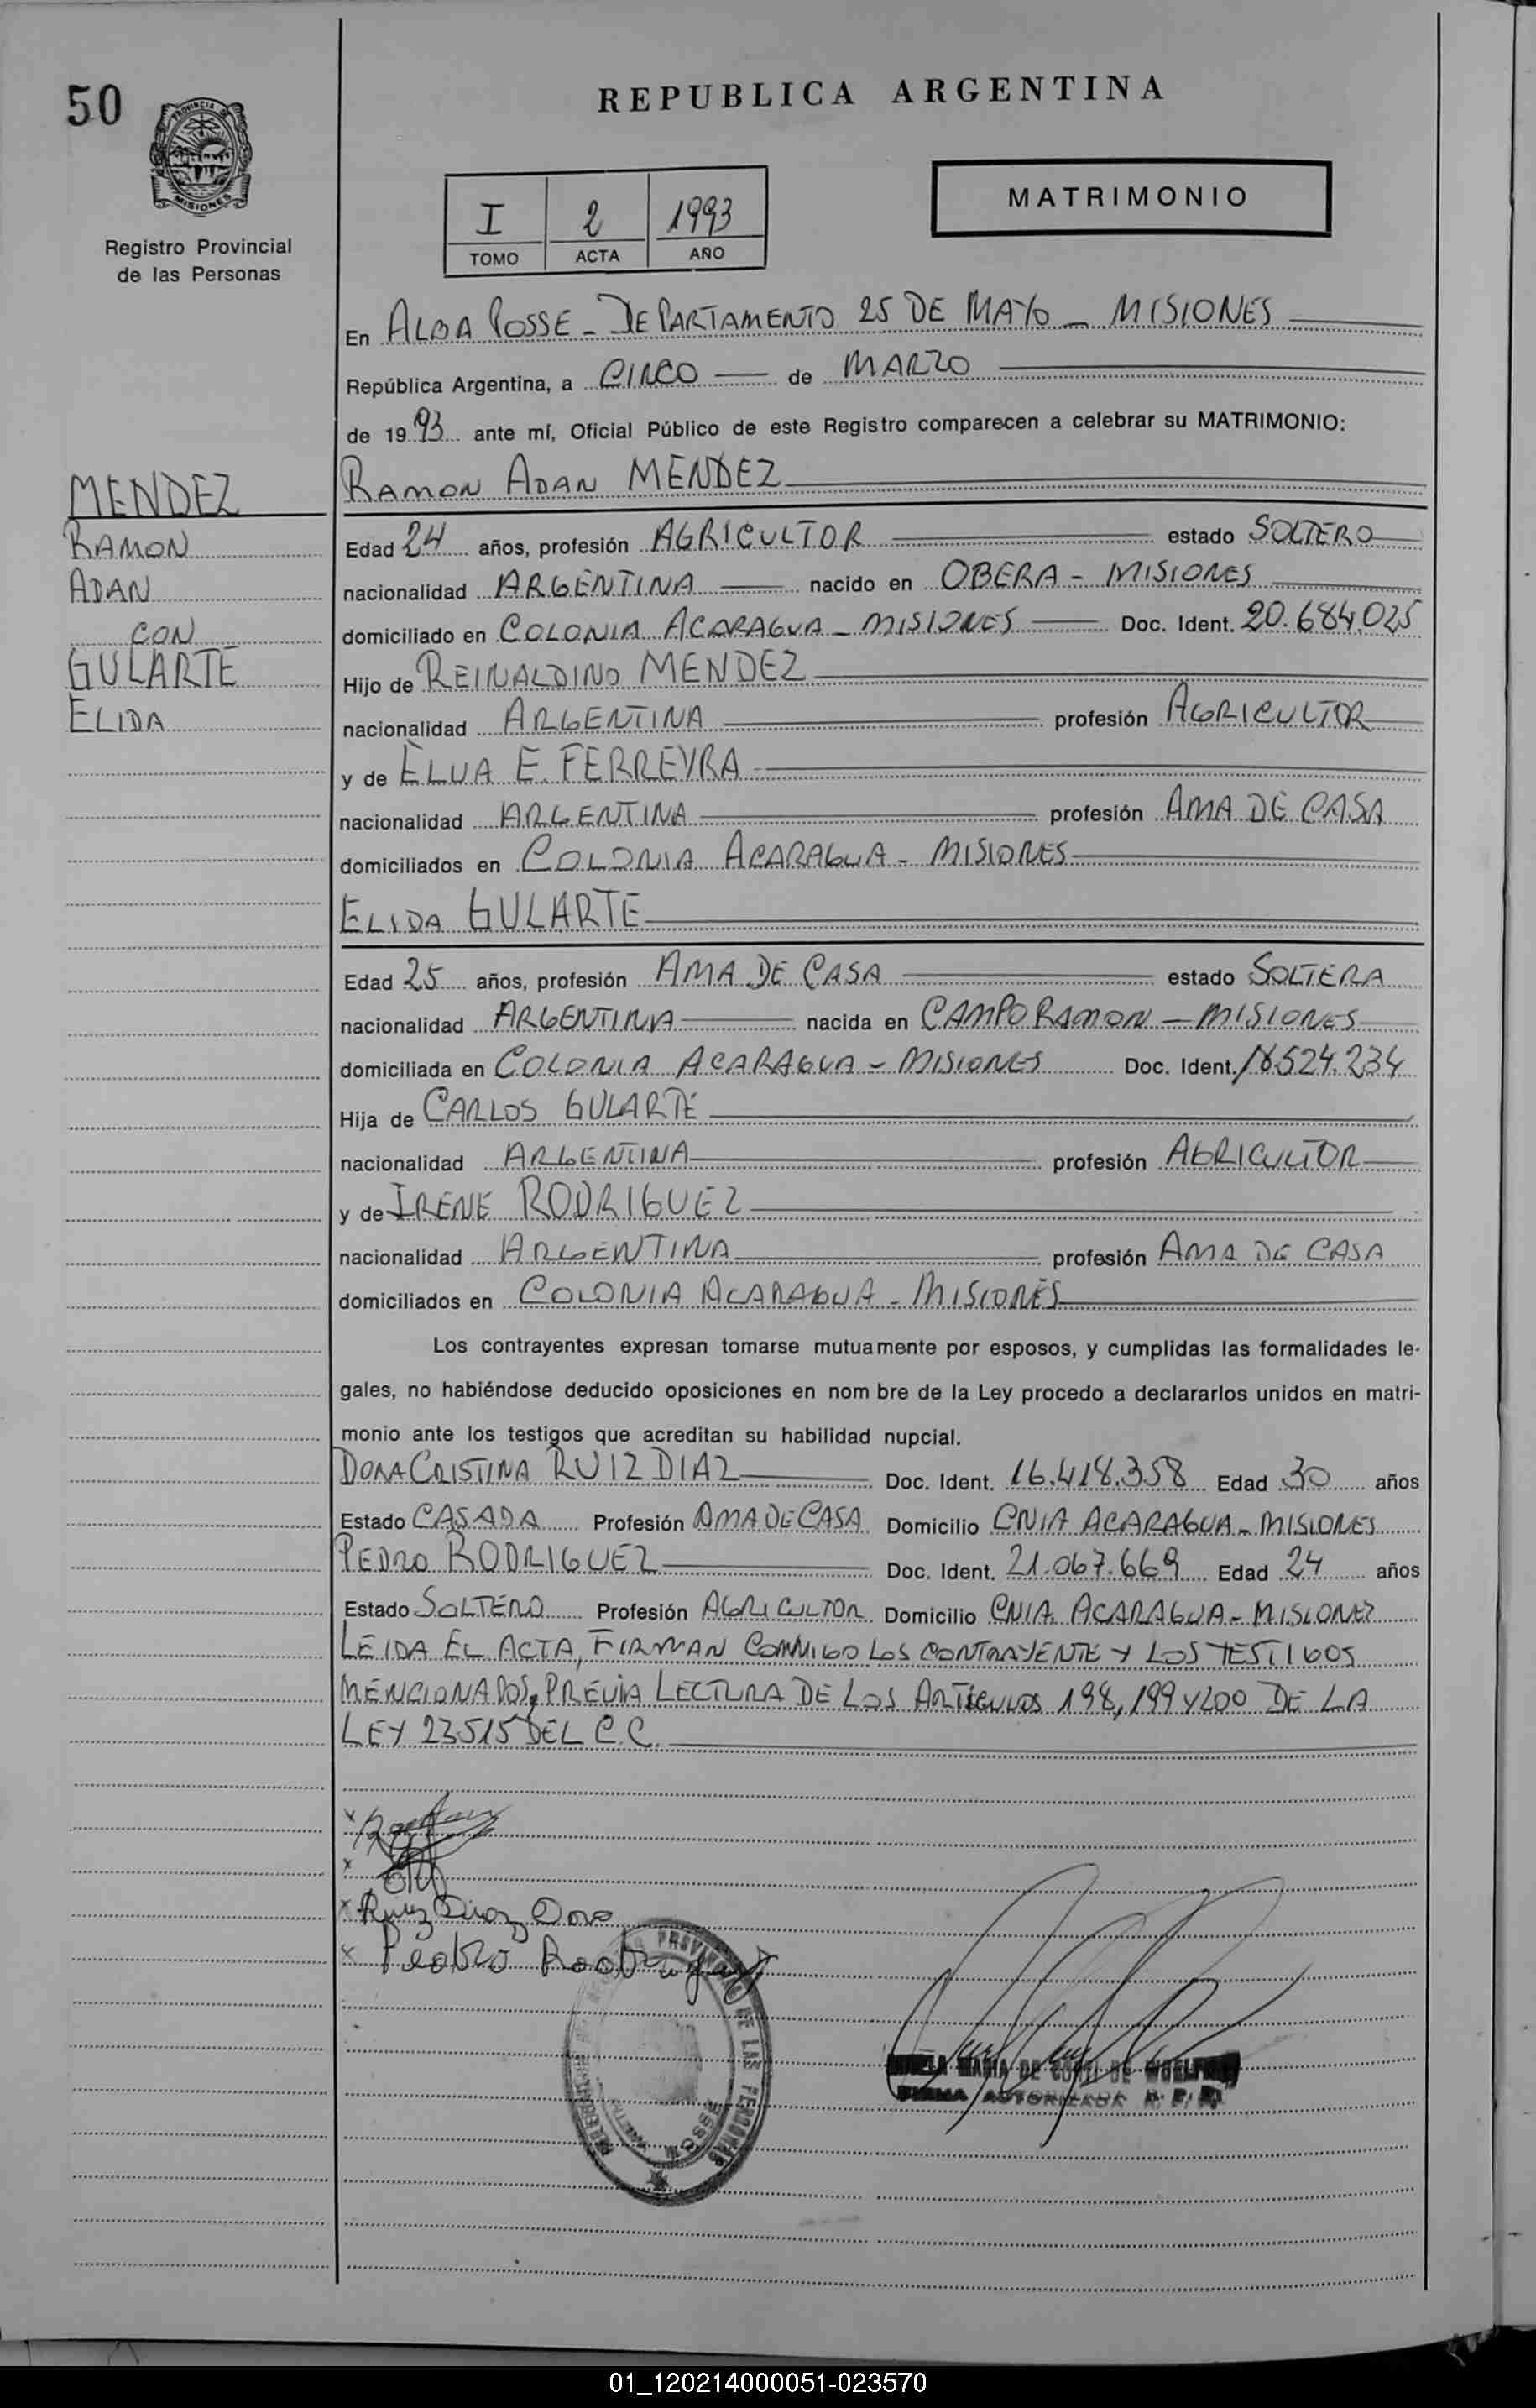 50
REPUBLICA ARGENTINA
PROVINCIA DE
MISIONES
Registro Provincial
de las Personas
I 2 1993
TOMO ACTA AÑO
MATRIMONIO
En ALBA POSSE - DEPARTAMENTO 25 DE MAYO - MISIONES
República Argentina, a CINCO de MARZO
de 1993 ante mí, Oficial Público de este Registro comparecen a celebrar su MATRIMONIO:
MENDEZ
RAMON
ADAN
CON
GULARTE
ELIDA
RAMON ADAN MENDEZ
Edad 24 años, profesión AGRICULTOR estado SOLTERO
nacionalidad ARGENTINA nacido en OBERA - MISIONES
domiciliado en COLONIA ACARAGUA - MISIONES Doc. Ident. 20.684.025
Hijo de REINALDINO MENDEZ
nacionalidad ARGENTINA profesión AGRICULTOR
y de ELUA E. FERREYRA
nacionalidad ARGENTINA profesión AMA DE CASA
domiciliados en COLONIA ACARAGUA - MISIONES
ELIDA GULARTE
Edad 25 años, profesión AMA DE CASA estado SOLTERA
nacionalidad ARGENTINA nacida en CAMPO RAMON - MISIONES
domiciliada en COLONIA ACARAGUA - MISIONES Doc. Ident. 18.524.234
Hija de CARLOS GULARTE
nacionalidad ARGENTINA profesión AGRICULTOR
y de IRENE RODRIGUEZ
nacionalidad ARGENTINA profesión AMA DE CASA
domiciliados en COLONIA ACARAGUA - MISIONES
Los contrayentes expresan tomarse mutuamente por esposos, y cumplidas las formalidades le-
gales, no habiéndose deducido oposiciones en nom bre de la Ley procedo a declararlos unidos en matri-
monio ante los testigos que acreditan su habilidad nupcial.
DORA CRISTINA RUIZ DIAZ Doc. Ident. 16.418.358 Edad 30 años
Estado CASADA Profesión AMA DE CASA Domicilio CNIA ACARAGUA - MISIONES
PEDRO RODRIGUEZ Doc. Ident. 21.067.669 Edad 24 años
Estado SOLTERO Profesión AGRICULTOR Domicilio CNIA. ACARAGUA - MISIONES
LEIDA EL ACTA, FIRMAN CONMIGO LOS CONTRAYENTE Y LOS TESTIGOS
MENCIONADOS, PREVIA LECTURA DE LOS ARTICULOS 198, 199 Y 200 DE LA
LEY 23515 DEL C.C.
x
x
x Ruiz Diaz Dora
x Pedro Rodriguez
PROVINCIAL DE LAS PERSONAS
MARIA DE DE
FIRMA AUTORIZADA R. P. P.
01_120214000051-023570